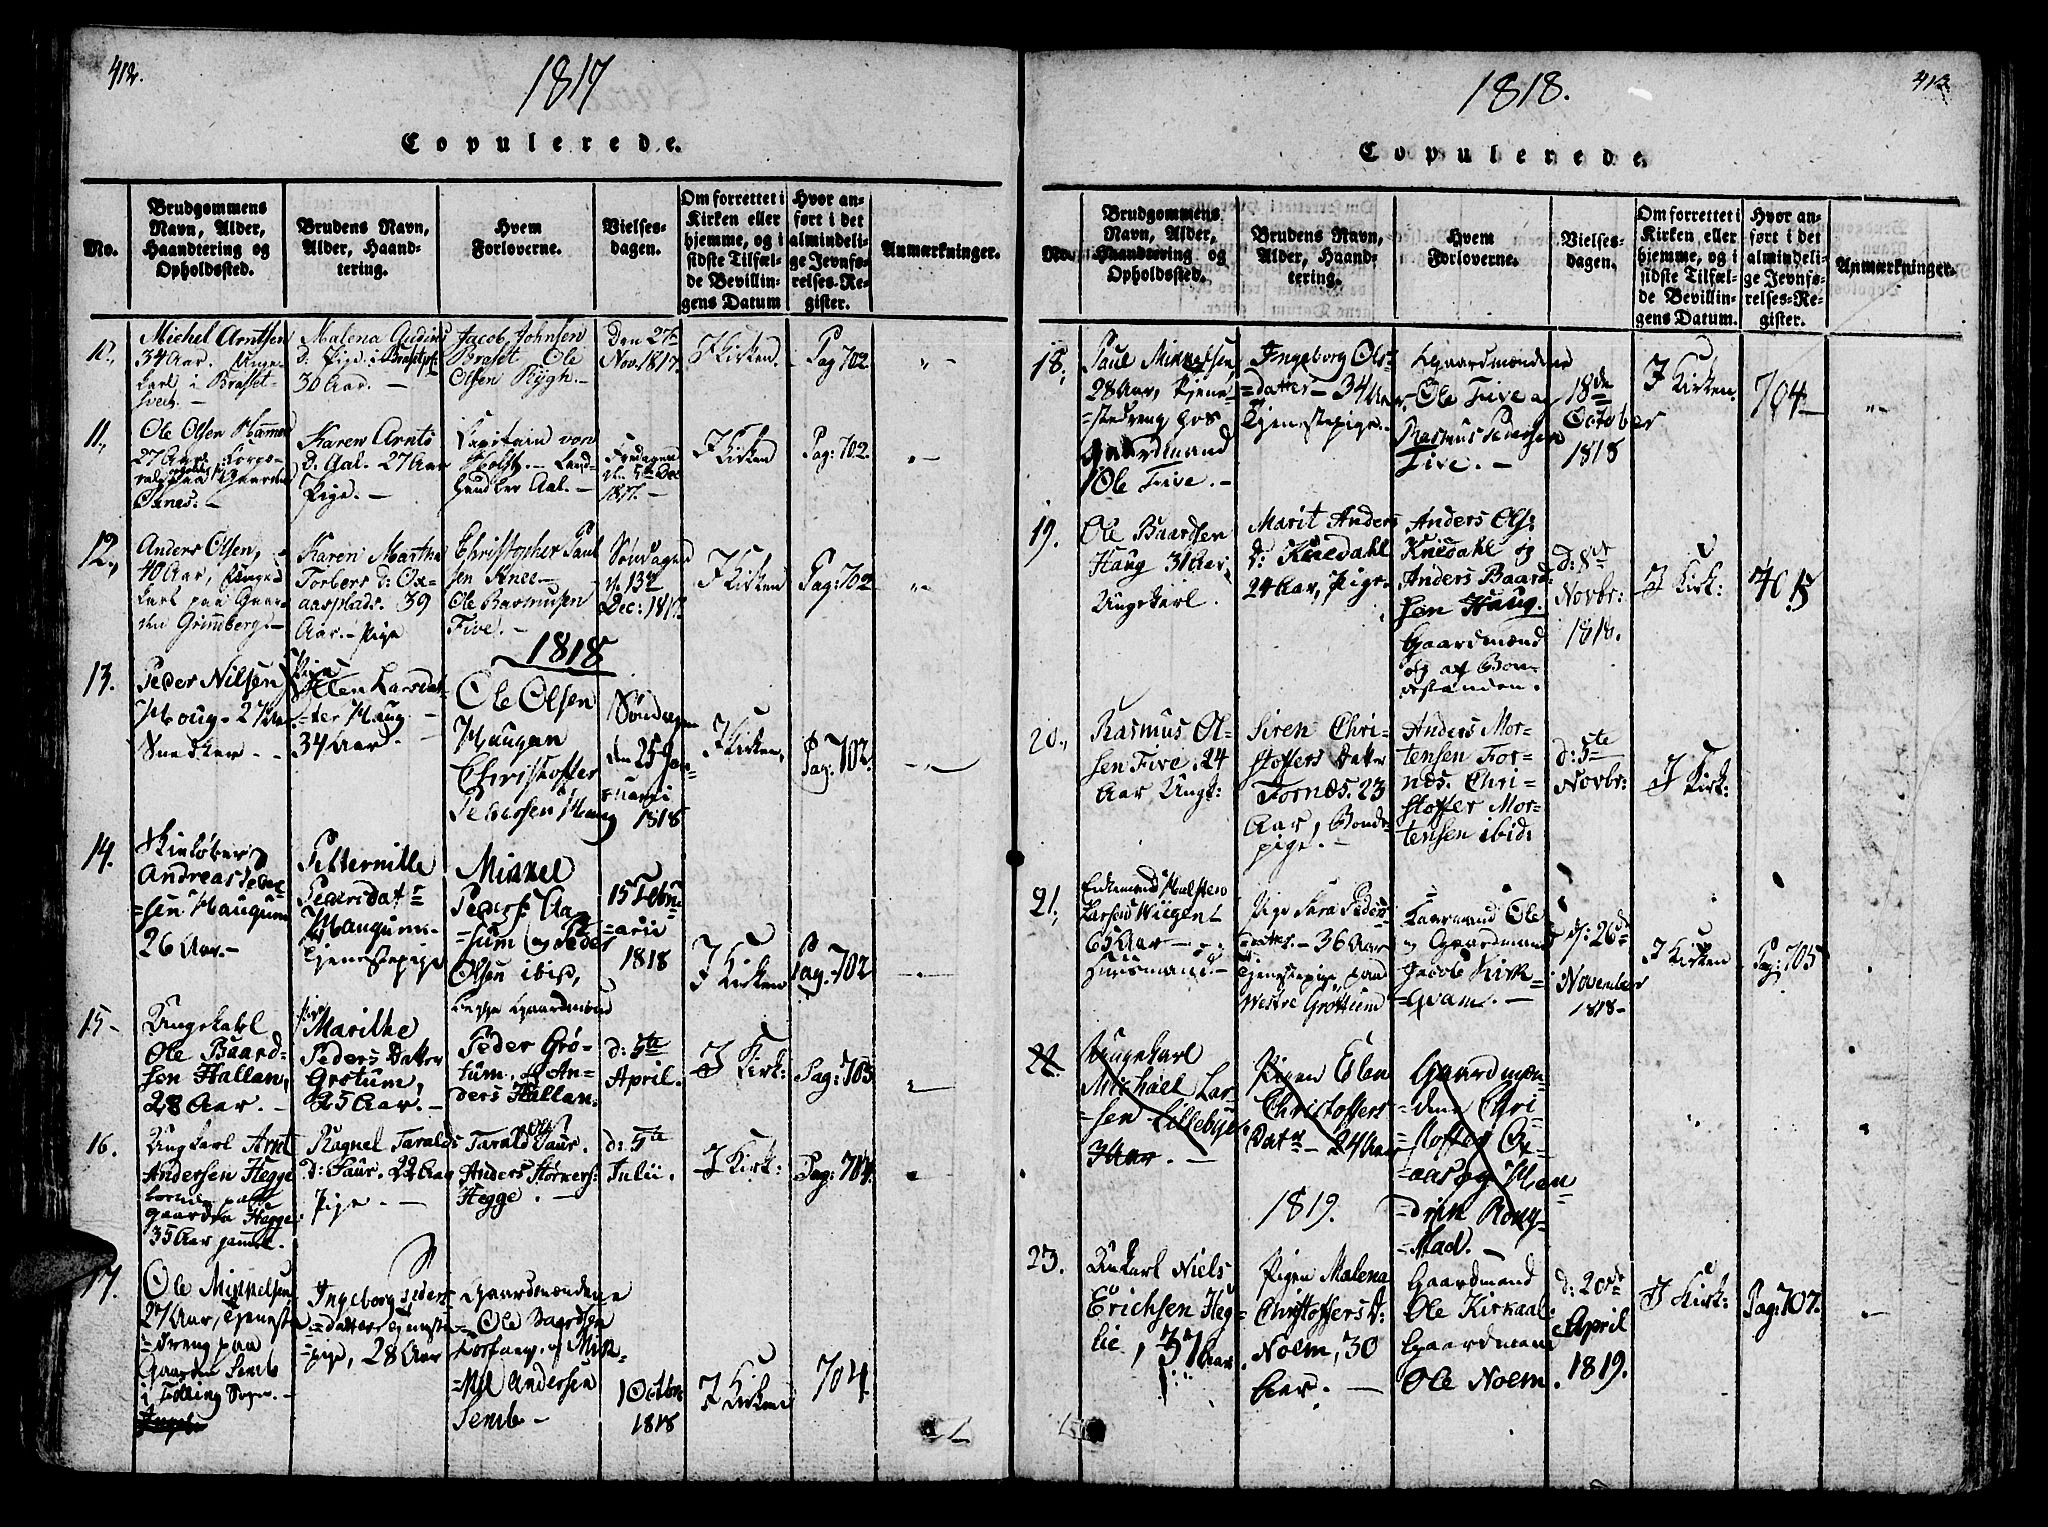 412.
1817
Copulerede.
No.
Brudgommens
Navn, Alder,
Haandtering og
Opholdssted.
Brudens Navn,
Alder, Haand-
tering.
Hvem
Forloverne.
Vielses-
dagen.
Om forrettet i
Kirken eller
hjemme, og i
sidste Tilfæl-
de Bevillin-
gens Datum
Hvor an-
ført i det
almindeli-
ge Jevnfø-
relses-Re-
gister.
Anmærkninger.
Michel Arntsen
34 Aar.
karl i
Malena
d. Pige i
30 Aar. —
Jacob Johnsen
Braset Ole
Olsen Rygh.
Den 27de
Nov. 1817.
I Kirken.
Pag 702.
11.,
Ole Olsen
27 Aar
paa Gaarden
Oxnes.—
Karen Arnts
d. Aal. 27 Aar
Pige. —
Capitain von
Holst. — Land-
Aal. —
Fredagen
d. 5te Dec
1817. —
I Kirken
Pag: 702.
12.,
Anders Olsen,
40 Aar, Unge
karl paa Gaar-
den Grimberg.—
Karen Martha
Torbers d: Ox-
aasplads. 39
Aar. — Pige
Christopher Paul
sen
Ole Rasmusen
Five. —
Søndagen
d. 13de
Dec: 1817
I Kirken
Pag: 702.
1818
13.
Peder Nilsen
Houg. 27 Aar.
Snedker —
Pige
Ellen Larsdat-
=ter Haug. —
34 Aar. —
Ole Olsen
Haugan
Christoffer
Pedersen Haug
Søndagen
den 25 Jan-
uarii
1818
I Kirken,
Pag: 702.
14.
Andreas Peder
=sen Haugum
26 Aar.—
Petternille
Pedersdatr
Haugum.
Tjenestepige
Mikkel
Peders: Aa
=sum og Peder
Olsen ibid,
Begge Gaardmænd
15 Febru
=arii
1818
I Kirken
Pag: 702
15—
Ungekarl
Ole Baard-
sen Hallan,
28 Aar. —
Pige
Marithe
Peders Datter
Grøtum,
25 Aar. —
Peder Grø-
tum, og An-
ders Hallan.
d: 5te
April.
I Kirk:
Pag: 703.
16.
Ungkarl Arnt
Andersen Hegge
paa
gaarden Hegge.
35 Aar gammel.
Ragnel Taralds
d: Saur. 22 Aar
Pige. —
Tarald Ols: Saur.
Anders Størkers:
Hegge. —
d: 5te
Julii.
I Kirk:
Pag: 704.
17.
Ole Mikkelsen
27 Aar, Tjeneste
=dreng paa
Gaarden Semb
i Følling Sogn. —
Ingeborg Peders
=datter Tjeneste=
=pige, 28 Aar
Gaardmændene
Ole Baardsen
og Mik-
=kel Andersen
Semb —
1 Octbr
1818
I Kirken
704.
413.
1818.
Copulerede.
No.
Brudgommens
Navn, Alder,
Haandtering og
Opholdssted.
Brudens Navn,
Alder, Haand-
tering.
Hvem
Forloverne.
Vielses-
dagen.
Om forrettet i
Kirken eller
hjemme, og i
sidste Tilfæl-
de Bevillin-
gens Datum.
Hvor an-
ført i det
almindeli-
ge Jevnfø-
relses-Re-
gister.
Anmærkninger.
18.,
Paul Mikkelsen,
28 Aar, Tjene-
=stedreng hos
Gaardmand
Ole Five. —
Ingeborg Ols-
=datter — 34 Aar,
Tjenestepige.
Gaardmændene
Ole Five og
Rasmus Pedersen
Five. —
18de
October
1818
I Kirken
704
19.
Ole Baardsen
Haug 31 Aar.
Ungekarl.
Marit Anders
d: Knedahl
24 Aar, Pige.
Anders Ols:
Knedahl og
Anders Baard-
sen Haug.
Gaardmænd
og af Bon-
destanden.
d: 8de
Novbr:
1818.
I Kirk:
20.,
Rasmus Ol-
sen Five. 24
Aar Ungk:
Siren Chri-
stoffers Datter
Fornes. 23
Aar, Bonde-
pige. —
Anders Mor-
tensen For-
nes. Chri-
stoffer Mor-
tensen ibid:
d: 5te
Novbr:
I Kirk:
21.,
Enkemand Halsten
Larsen
65 Aar —
Huusmand. —
Pige Sara Peders-
datter. — 36 Aar
Tjenestepige paa
Westre Grøttum
Gaarmand Ole
og Gaardmand
Jacob Kirk-
=qvam. —
d: 26de
November
1818—
I Kirken
Pag: 705
22.
Ungekarl
Michael Lar-
=sen Lillebye.
Pigen Elen
Christoffers
Datr — 24 Aar
Gaardmæn-
=dene Chri-
=stoffer Ox-
=aas og Hen
=drik Rong-
=stad. —
1819.
23.
Unkarl Niels
Erichsen Heg-
lie, 37 Aar.
Pigen Malena
Christoffers D:
Noem, 30
Aar. —
Gaardmand
Ole Kirkaal
Gaardmand
Ole Noem.
d: 20de
April
1819.
I Kirk:
Pag: 707.